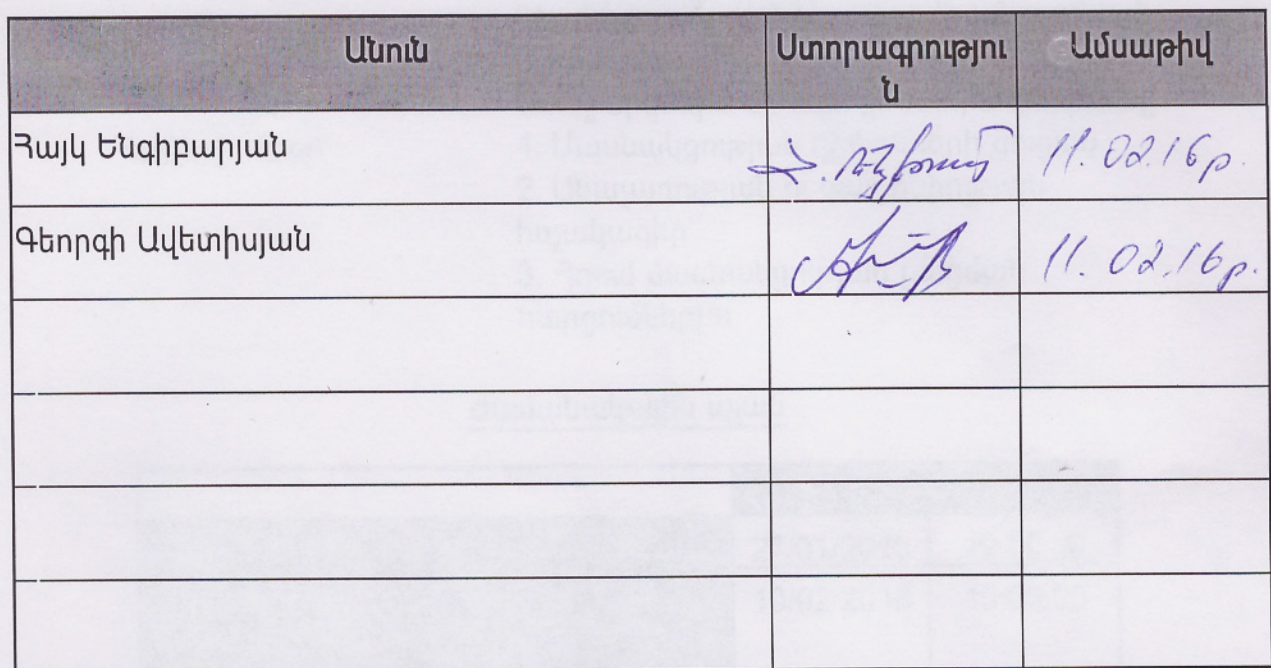 Անուն Ստորագրությու Ամսաթիվ
ն
Հայկ Ենգիբարյան 11.02.16թ.
Գեորգի Ավետիսյան 11.02.16թ.